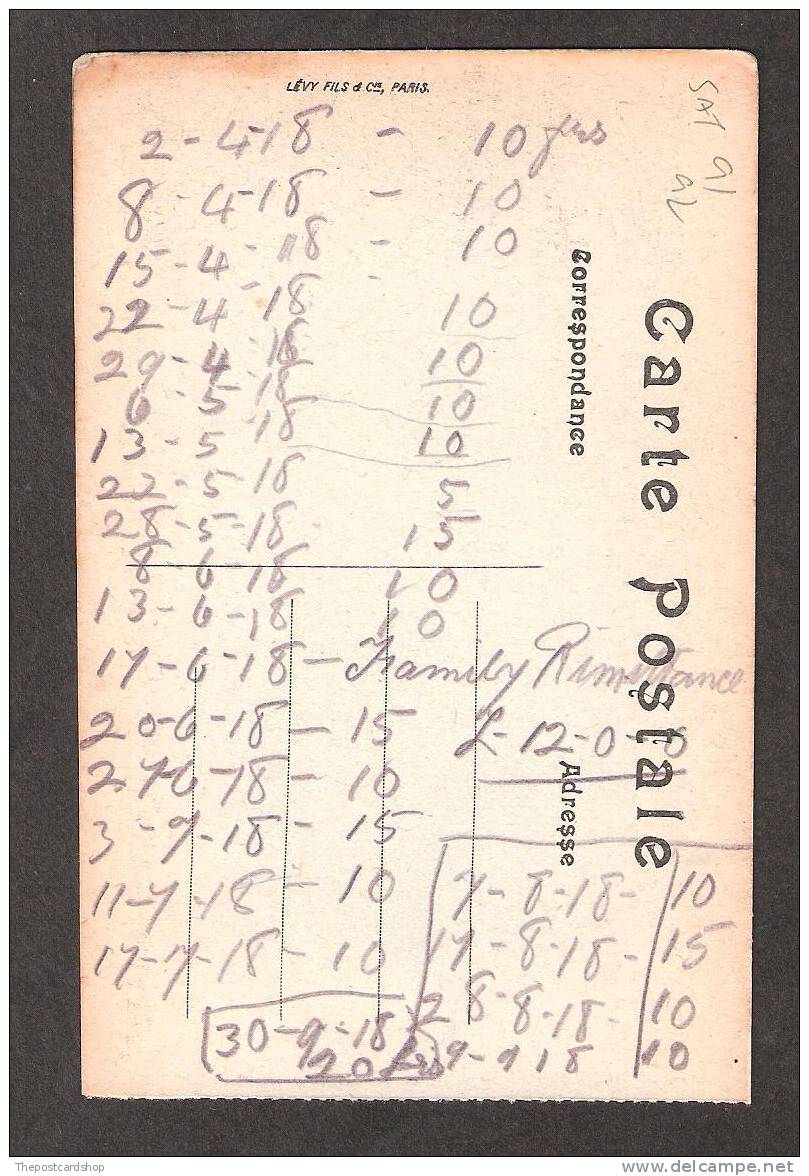 LÉVY FILS & Cie, PARIS.
2-4-18 - 10 frs
8-4-18 - 10
15-4-18 - 10
22-4-18 10
29-4-18 10
6-5-18 10
13-5-18 10
22-5-18 5
28-5-18 15
8 6 18 10
13-6-18 10
17-6-18 - Family Remittance
20-6-18 - 15 £-12-0-0
27-6-18 - 10
3-7-18 - 15
11-7-18 - 10
17-7-18 - 10
7-8-18- 10
17-8-18- 15
28-8-18- 10
9-9 18 10
30-9-18
20 frs
SAT 91
92
Carte Postale
Correspondance
Adresse
Thepostcardshop
www.delcampe.net